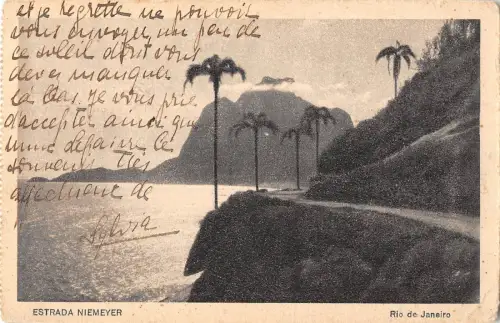 et je regrette ne pouvoir
vous envoyer un peu de
ce soleil dont vous
devez manquer
là bas. Je vous prie
d'accepter ainsi que
les
souvenirs très
affectueux de
Sylvia
ESTRADA NIEMEYER
Rio de Janeiro